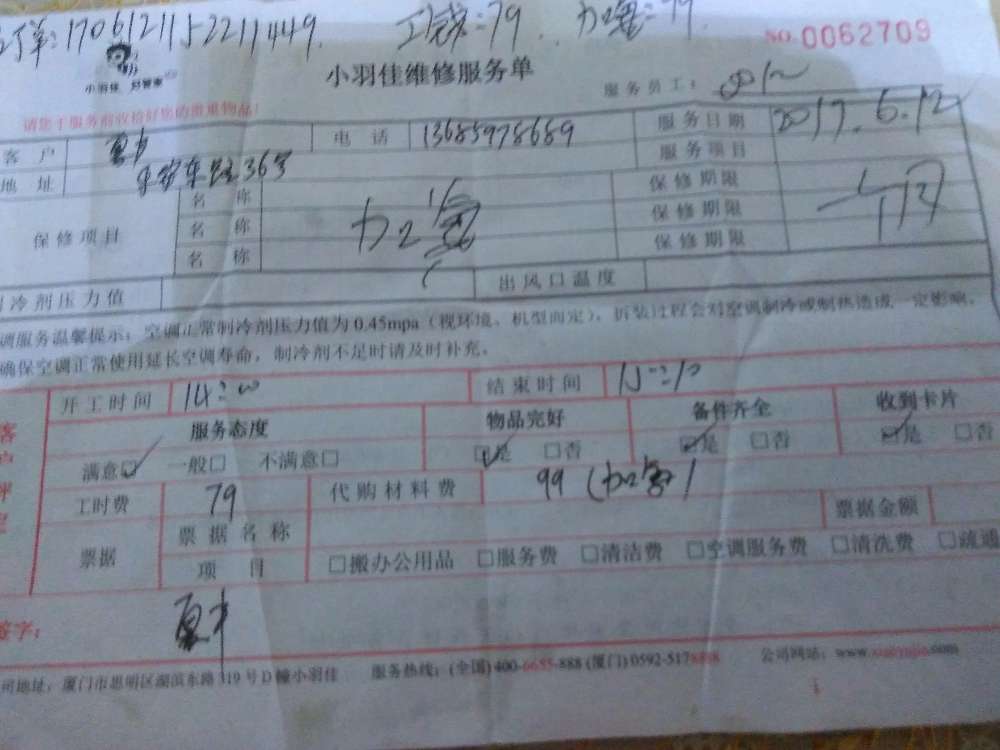 订单:1706121152211449. 工钱:79. 加氢:99
NO. 0062709
小羽佳 好管家
小羽佳维修服务单
服务员工:
请您于服务前收拾好您的贵重物品!
客户 夏丰 电话 13685978689 服务日期 2017.6.12
地址 36号 服务项目
保修项目 名称 保修期限
名称 保修期限
名称 保修期限
制冷剂压力值 出风口温度
调服务温馨提示:空调正常制冷剂压力值为0.45mpa(视环境、机型而定),拆装过程会对空调制冷或制热造成一定影响,
确保空调正常使用延长空调寿命,制冷剂不足时请及时补充。
客户评
开工时间 14:00 结束时间 15:10
服务态度 物品完好 备件齐全 收到卡片
满意□ 一般□ 不满意□ □是 □否 □是 □否 □是 □否
工时费 79 代购材料费 99
票据 票据名称 票据金额
项目 □搬办公用品 □服务费 □清洁费 □空调服务费 □清洗费 □疏通
签字: 夏丰
司地址:厦门市思明区湖滨东路319号D幢小羽佳 服务热线:(全国)400-6655-888 (厦门)0592-5178888 公司网站:www.xiaoyujia.com